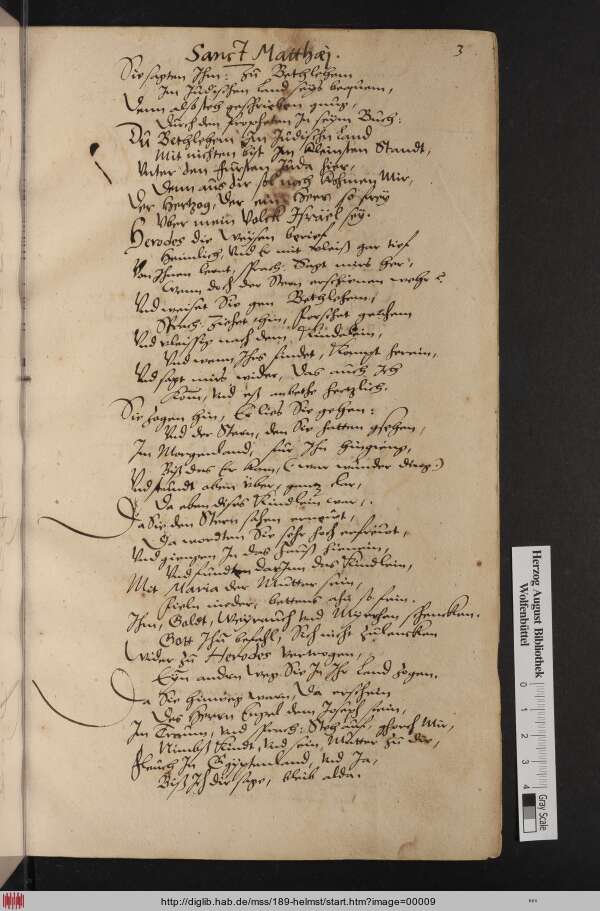 Sanct Matthæj.
3
Sie sagten Ihm: zu Bethlehem
Im Judischen Land seys bequem,
Denn also steh geschrieben gnug,
Durch den Propheten In seym Buch:
Du Bethlehem Im Judischn Land
Mit nichten bist Im kleinsten Standt,
Unter den Fursten Juda hier,
Denn aus dir sol noch kohmen Mir,
Der Hertzog, der ein Herr so frey
Uber mein Volck Israel sey.
Herodes die Weysen berief
Heimlich, Und Er mit Vleiß gar tief
Von Ihnen lernt, sprach: Sagt mirs her,
Wenn doch der Stern erschienen wehr?
Und weiset Sie gen Bethlehem,
Sprach: Ziehet hin, forschet
Und vleissig nach dem Kindelein,
Und wenn Ihrs findet, kompt herein,
Und sagt mirs wider, Das auch Ich
Kom, und eß anbethe hertzlich.
Sie zogen hin, Er lies Sie gehen:
Und der Stern, den Sie hatten gsehen,
Im Morgenland, fur Ihn hingieng,
Biß das Er kam, (war wunder ding)
Und stundt oben Uber, gantz klar,
Da eben dises Kindlein war.
Da Sie den Stern sahen
Da wordten Sie sehr hoch erfreuet,
Und giengen In das Hauß hienein,
Und fundten darInn das Kindlein,
Mit Maria der Mutter sein,
Fieln nieder, bettens ahn so fein.
Ihm, Goldt, Weyrauch und Myrrhen schencken.
Gott Ihn befahl, Sich nicht zulencken
Wider zu Herodes
Eyn andern Weg Sie In Ihr Land zogen.
Da Sie hinweg warn, Da erschein
Des Herrn Engel dem Joseph fein,
Im Traum, und sprach: Steh auf, ghorch Mir,
Nimbs Kindt, und sein Mutter zu dir,
Fleuch In Egyptenland, und Ja,
Biß Ich dir sage, bleib alda.
Herzog August Bibliothek
Wolfenbüttel
0 1 2 3 4
Gray Scale
http://diglib.hab.de/mss/189-helmst/start.htm?image=00009